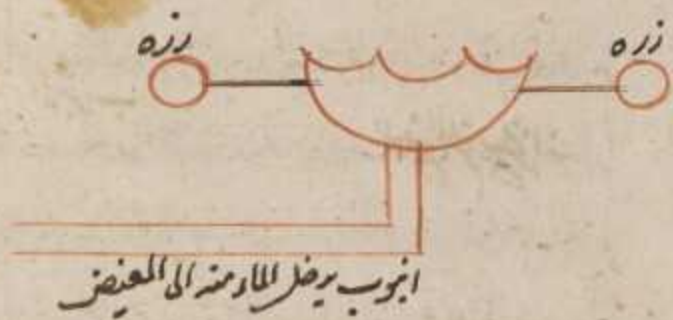 زره
رزه
انبوب يدخل الماء منه الى المغيض